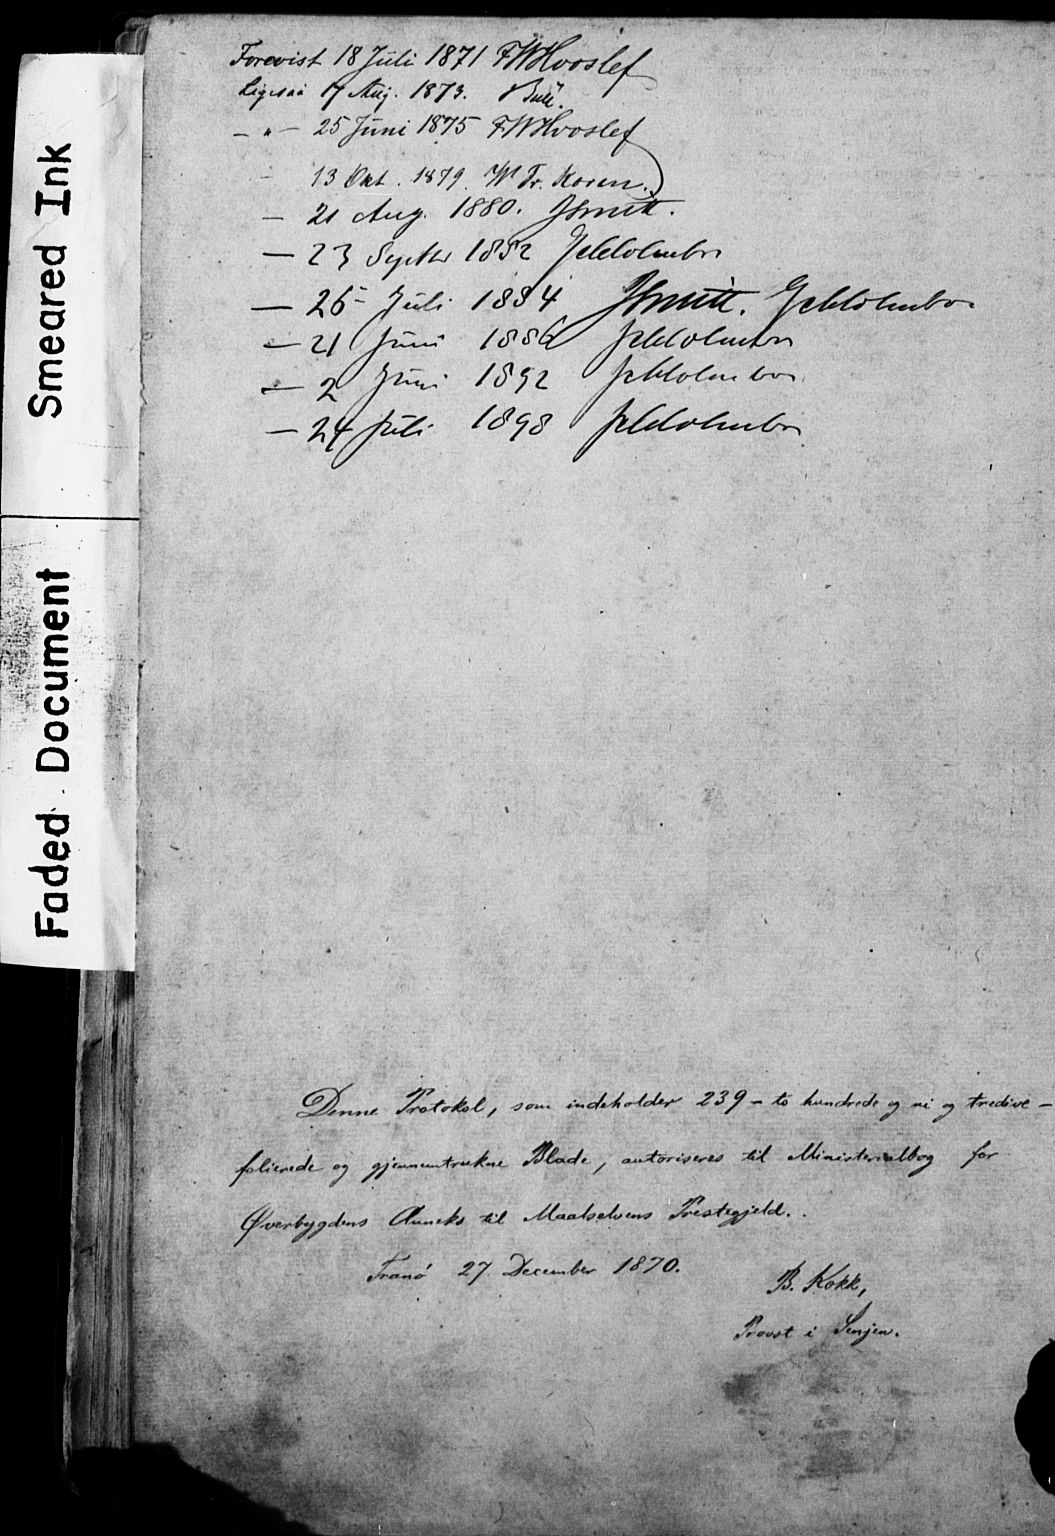 Forevist 18 Juli 1871 FWHvoslef
Ligesaa 17 Aug. 1873. Bull.
— " — 25 Juni 1875 FWHvoslef
13 Okt. 1879. W Fr. Koren.
— 21 Aug. 1880. JSmitt.
— 23 Septbr 1882
— 26 Juli 1884 JSmitt.
— 21 Juni 1886
— 2 Juni 1892
— 24 Juli 1898
Denne Protokol, som indeholder 239 – to hundrede og ni og tredive –
folierede og gjennemtrukne Blade, autoriseres til Ministerialbog for
Øverbygdens Anneks til Maalselvens Prestegjeld.
Tranø 27 December 1870.
B. Kokk,
Provst i Senjen.
Smeared Ink
Faded Document